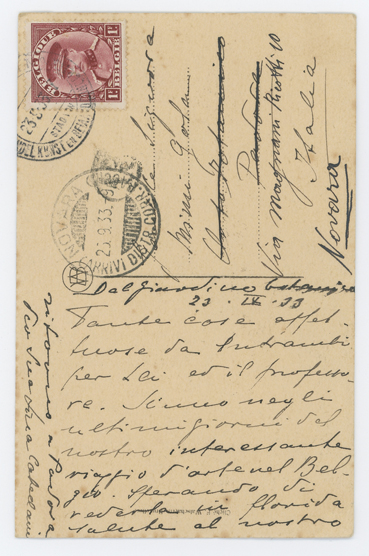 BELGIQUE BELGIË
1F 1F
23.9.33
NOVARA
26.9.33
ARRIVI DISTR.
Signora
Mimi
Orto Botanico
Padova
Via Magnani Ricotti 10
Italia
Novara
Dal Giardino botanico
23 · IX · 33
Tante cose affet-
tuose da entrambi
per Lei ed il professo-
re. Siamo negli
ultimi giorni del
nostro interessante
viaggio d'arte nel Bel-
gio. Sperando di
rederla in florida
salute al nostro
ritorno a Padova